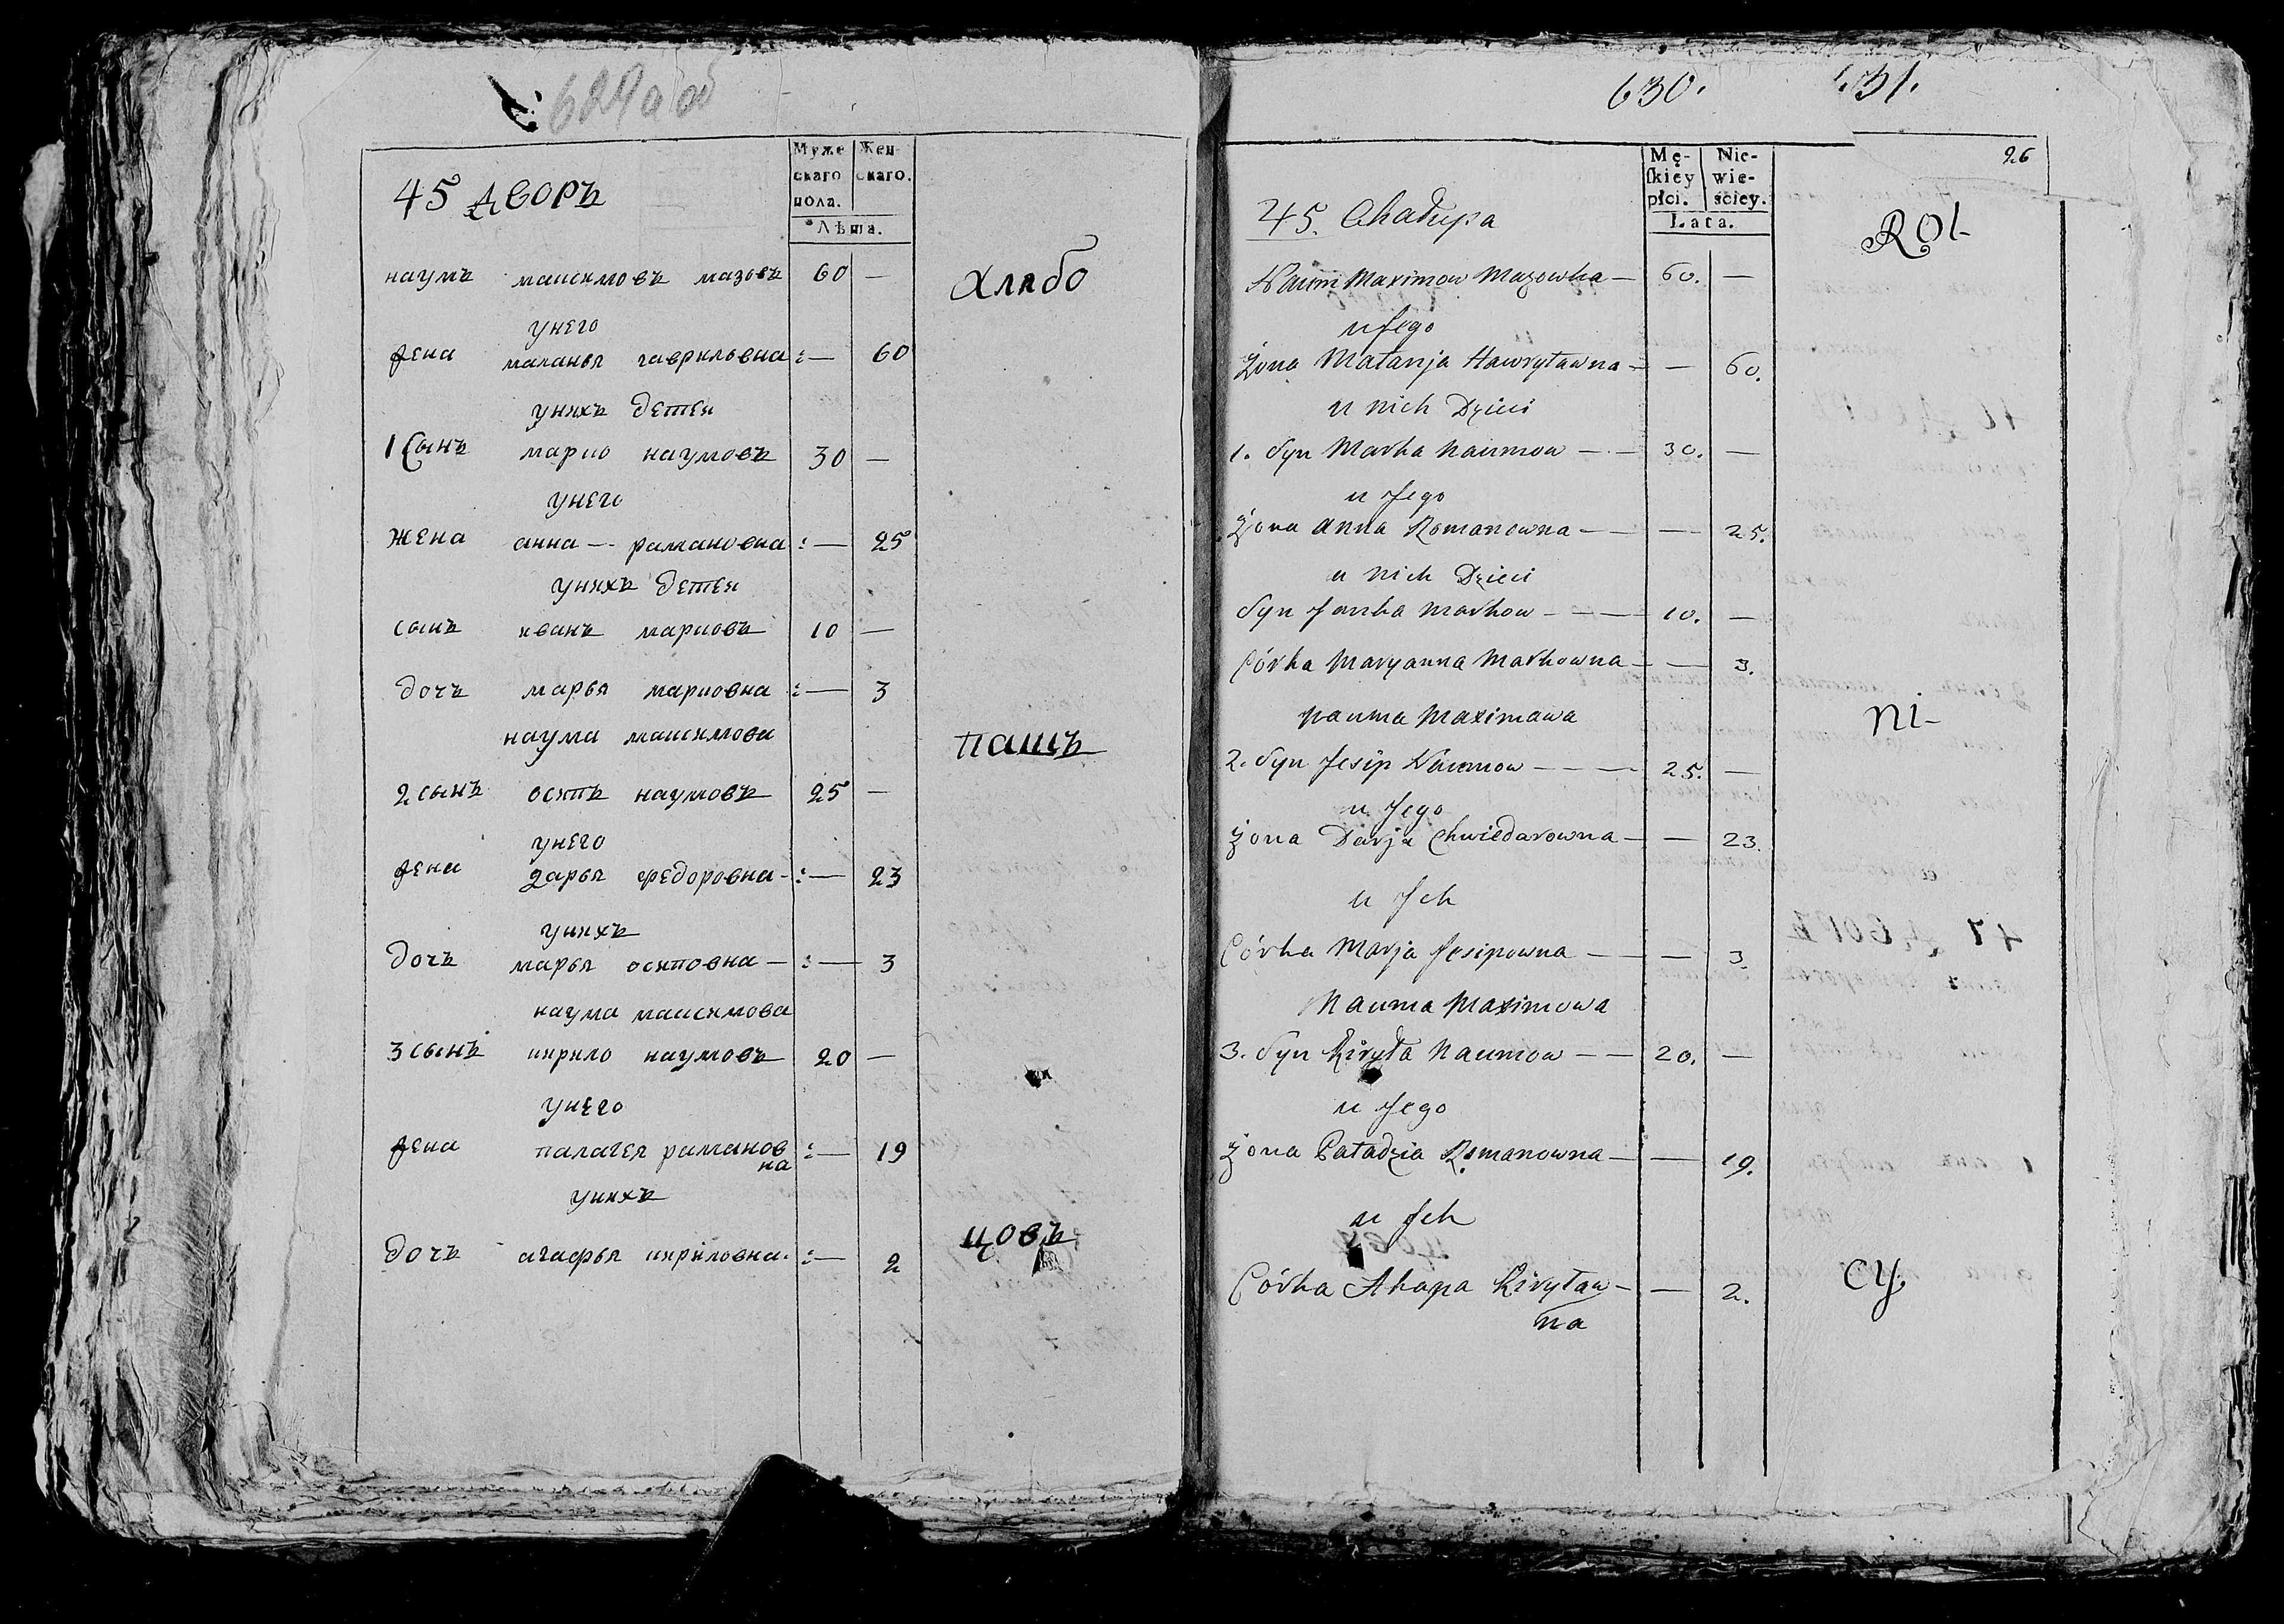 624 а об
Муже
скаго
пола.
Жен-
скаго.
Лѣта.
45 дворъ
наумъ максимовъ мазовк 60 —
хлябо
унего
жена маланья гавриловна :— 60
унихъ детей
1 сынъ марко наумовъ 30 —
унего
жена анна — рамановна :— 25
унихъ детей
сынъ иванъ марковъ 10 —
дочъ марья марковна :— 3
наума максимова
пашъ
2 сынъ осипъ наумовъ 25 —
унего
жена дарья федоровна - :— 23
унихъ
дочъ марья осиповна — :— 3
наума максимова
3 сынъ кирило наумовъ 20 —
унего
жена палагея раманов
на :— 19
унихъ
цовъ
дочъ агафья кириловна. :— 2
630. 631.
26
Mę-
skiey
płci.
Nie-
wie-
ściey.
Lata.
45. Chałupa
Rol-
Naum Maximow Mazowka — 60. —
u Jego
Żona Małanja Hawryławna — — 60.
u nich Dzieci
1. Syn Marka Naumow — — 30. —
u Jego
Żona Anna Romanowna — — 25.
u nich Dzieci
Syn Janka Markow — — — 10. —
Córka Maryanna Markowna — — 3.
Nauma Maximawa
ni-
2. Syn Jesip Naumow — — — 25. —
u Jego
Żona Darja Chwiedarowna — — 23.
u Jch
Córka Marja Jesipowna — — 3.
Nauma Maximowa
3. Syn Kiryła Naumow — — 20. —
u Jego
Żona Paładzia Romanowna — — 19.
u Jch
cy
Córka Ahapa Kiryław-
na — 2.